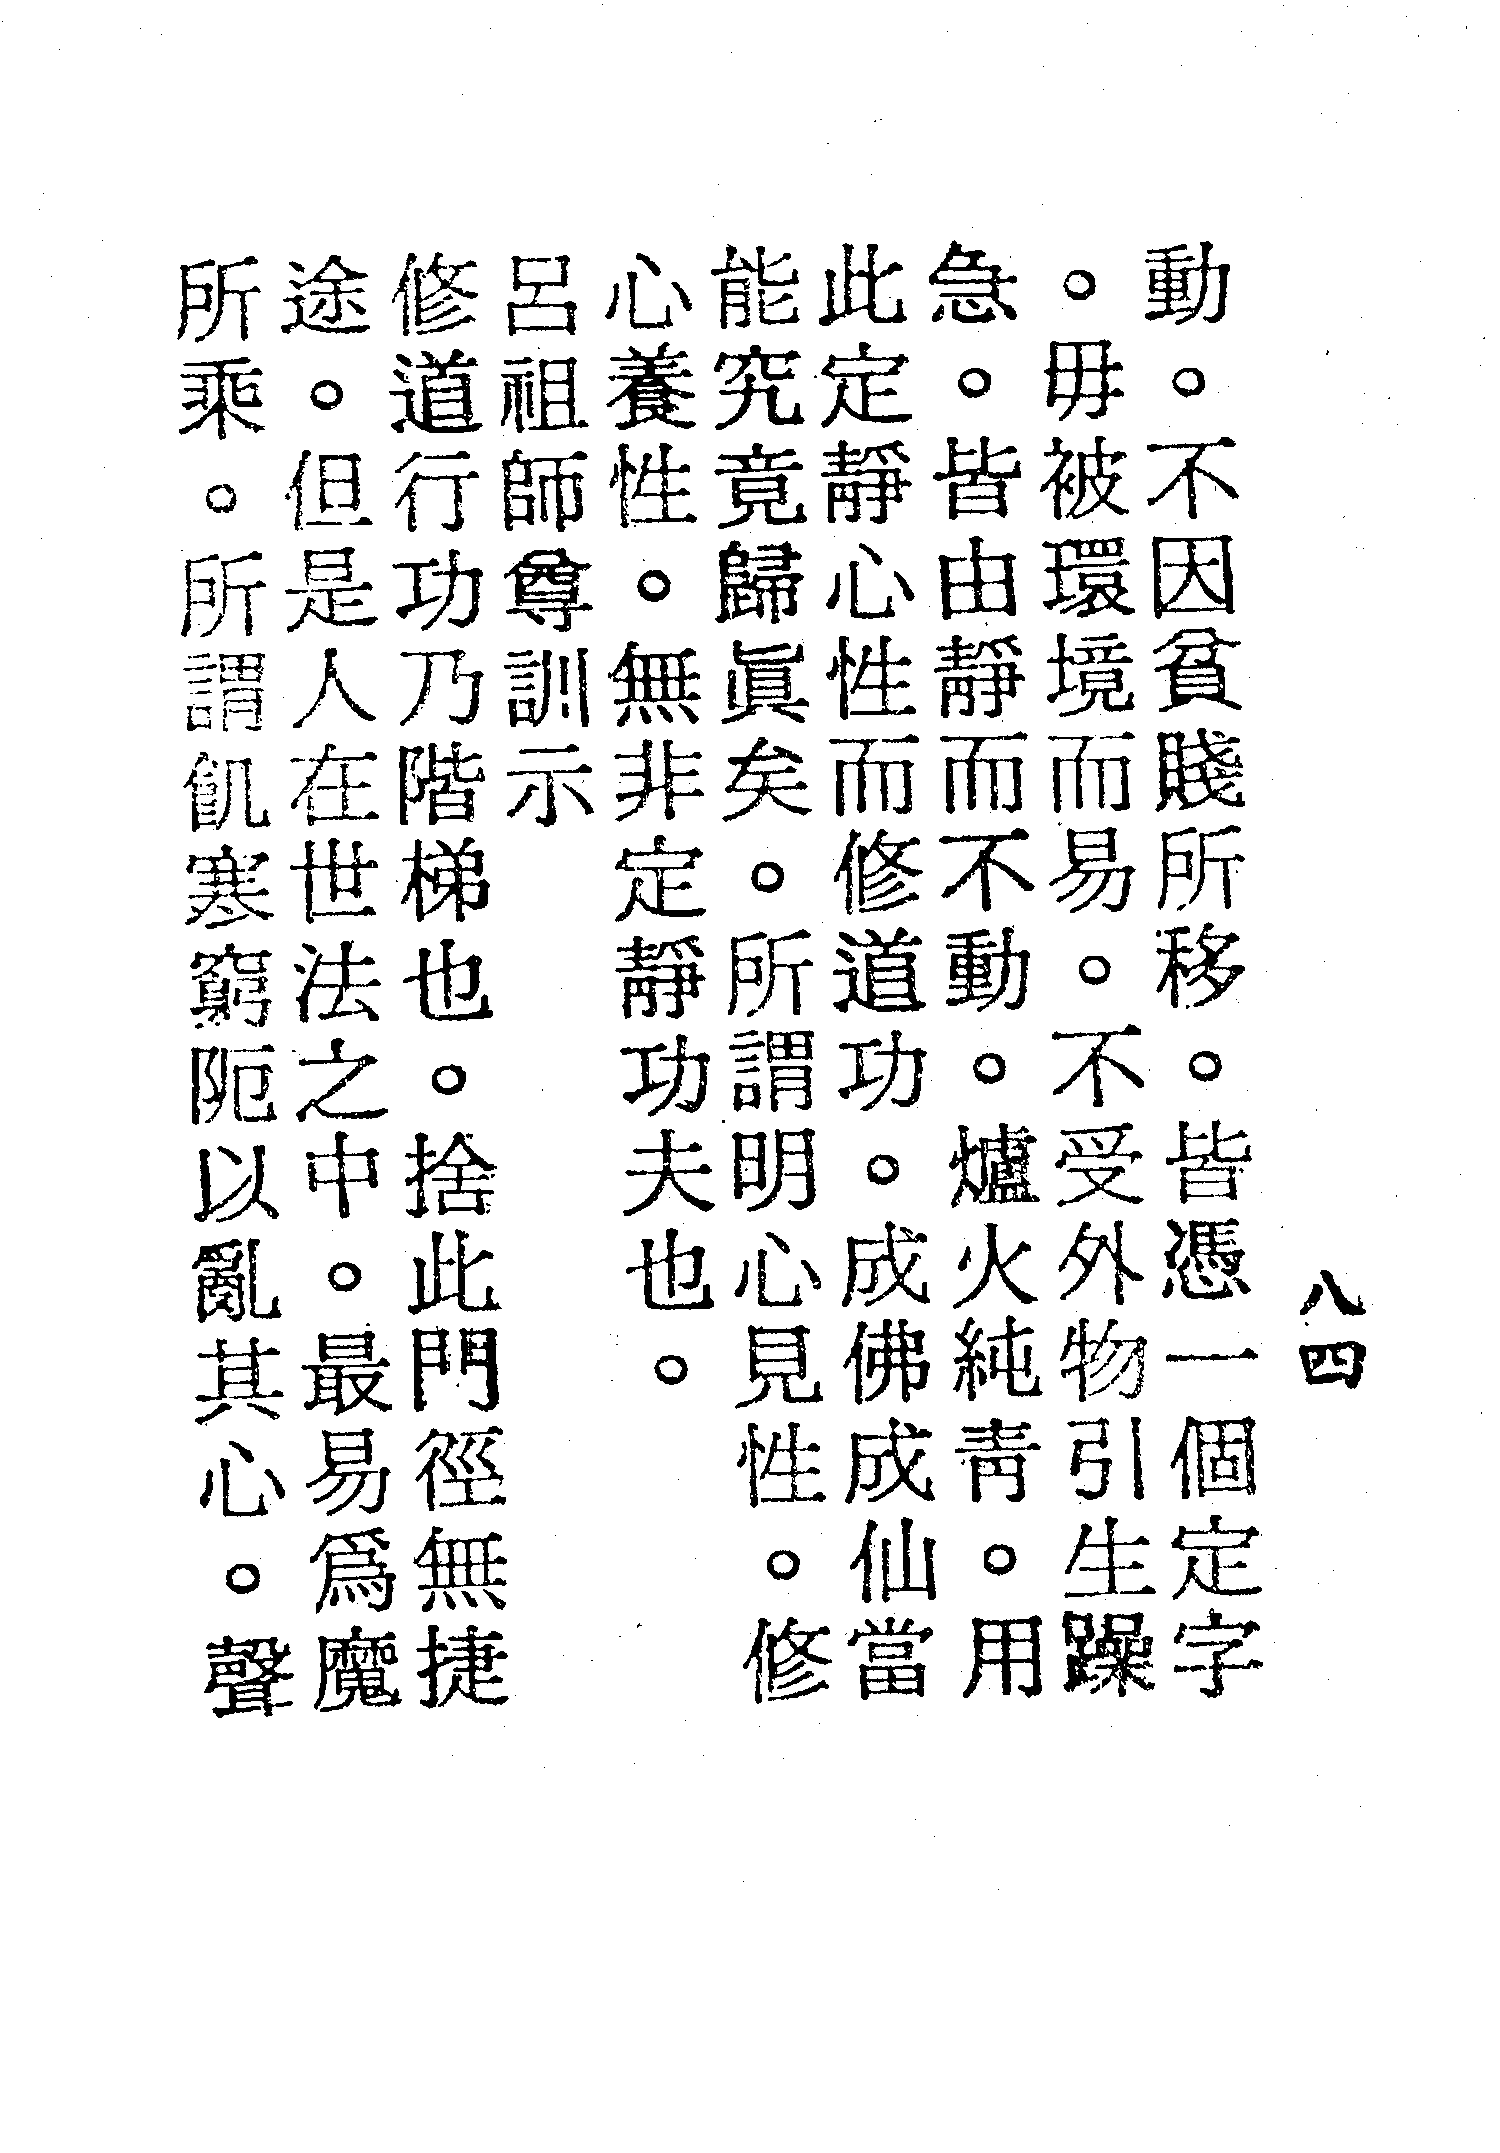 八四
動。不因貧賤所移。皆憑一個定字
。毋被環境而易。不受外物引生躁
急。皆由靜而不動。爐火純靑。用
此定靜心性而修道功。成佛成仙當
能究竟歸眞矣。所謂明心見性。修
心養性。無非定靜功夫也。
呂祖師尊訓示
修道行功乃階梯也。捨此門徑無捷
途。但是人在世法之中。最易爲魔
所乘。所謂飢寒窮阨以亂其心。聲